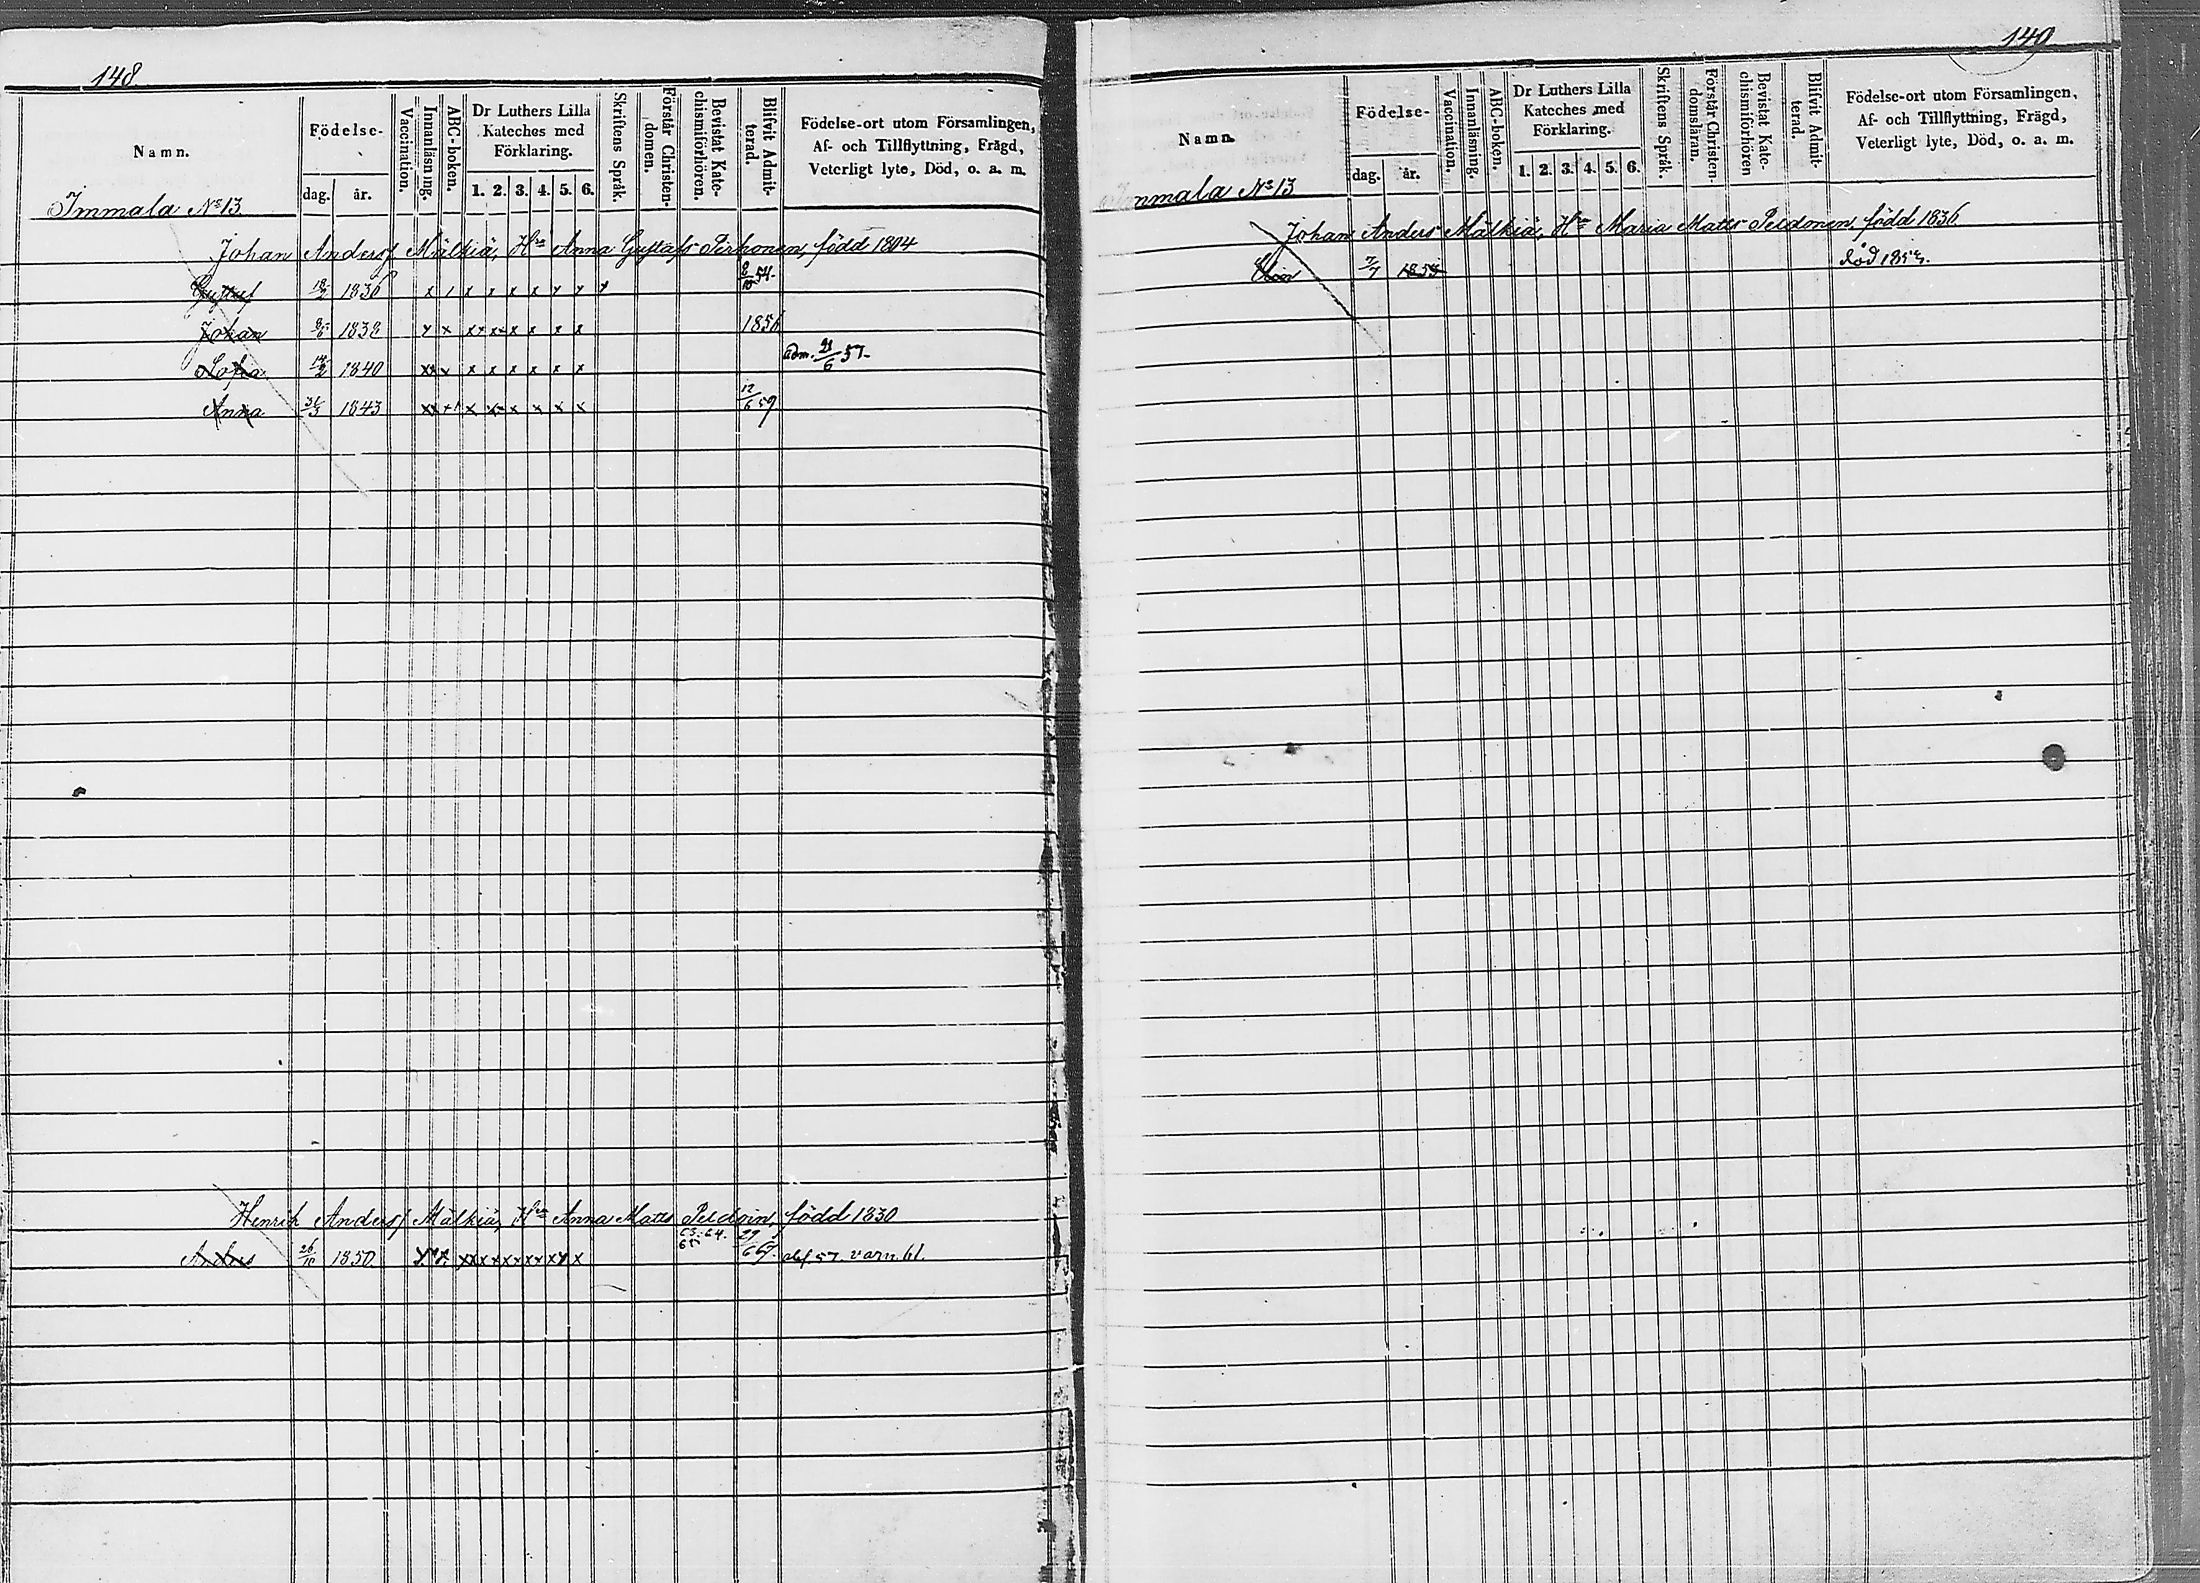 148.
Namn.
Födelse-
dag.
år.
Vaccination.
Innanläsning.
ABC-boken.
Dr Luthers Lilla
Kateches med
Förklaring.
1. 2. 3. 4. 5. 6.
Skriftens Språk.
Förstår Christen-
domen.
Bevistat Kate-
chismiförhören.
Blifvit Admit-
terad.
Födelse-ort utom Församlingen,
Af- och Tillflyttning, Frägd,
Veterligt lyte, Död, o. a. m.
Immala No 13.
Johan Andersf Mälkiä, Hu Anna Gustafs Pirhonen, född 1804
Gustaf 1836 x / x x x x x x x 8/10 54.
Johan 1838 x x x x x x x x x x 1856
Sofia 1840 x x x x x x x x x adm. 21/6 57.
Anna 31/3 1843 x x x x x x x x x 12/6 59
Henrik Andersf Mälkiä, Hu Anna Matts Peldoin, född 1830
63. 64.
65
Anders 26/11 1850 x x x x x x x x x x x 29/6 69. abs. 57. varn. 61.
149
Namn.
Födelse-
dag.
år.
Vaccination.
Innanläsning.
ABC-boken.
Dr Luthers Lilla
Kateches med
Förklaring.
1. 2. 3. 4. 5. 6.
Skriftens Språk.
Förstår Christen-
domsläran.
Bevistat Kate-
chismiförhören
Blifvit Admit-
terad.
Födelse-ort utom Församlingen,
Af- och Tillflyttning, Frägd,
Veterligt lyte, Död, o. a. m.
Immala No 13
Johan Anders Mälkiä, Hu Maria Matts Peldonen, född 1836
7/7 död